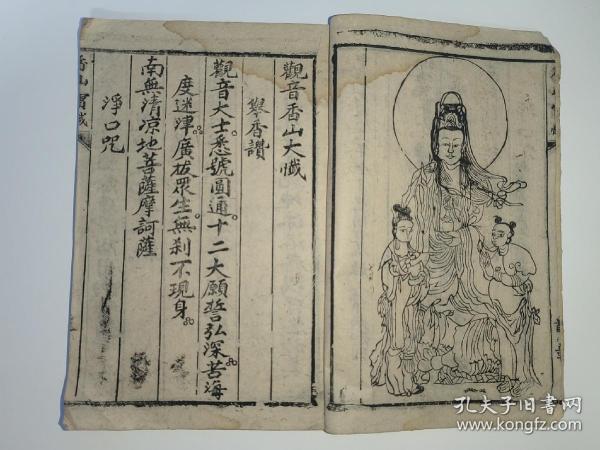 觀音香山大懺
舉香讚
觀音大士悉號圓通十二大願誓弘深苦海
度迷津廣拔眾生無刹不現身
南無清凉地菩薩摩訶薩
淨口咒
香山寶懺
孔夫子旧書网
www.kongfz.com